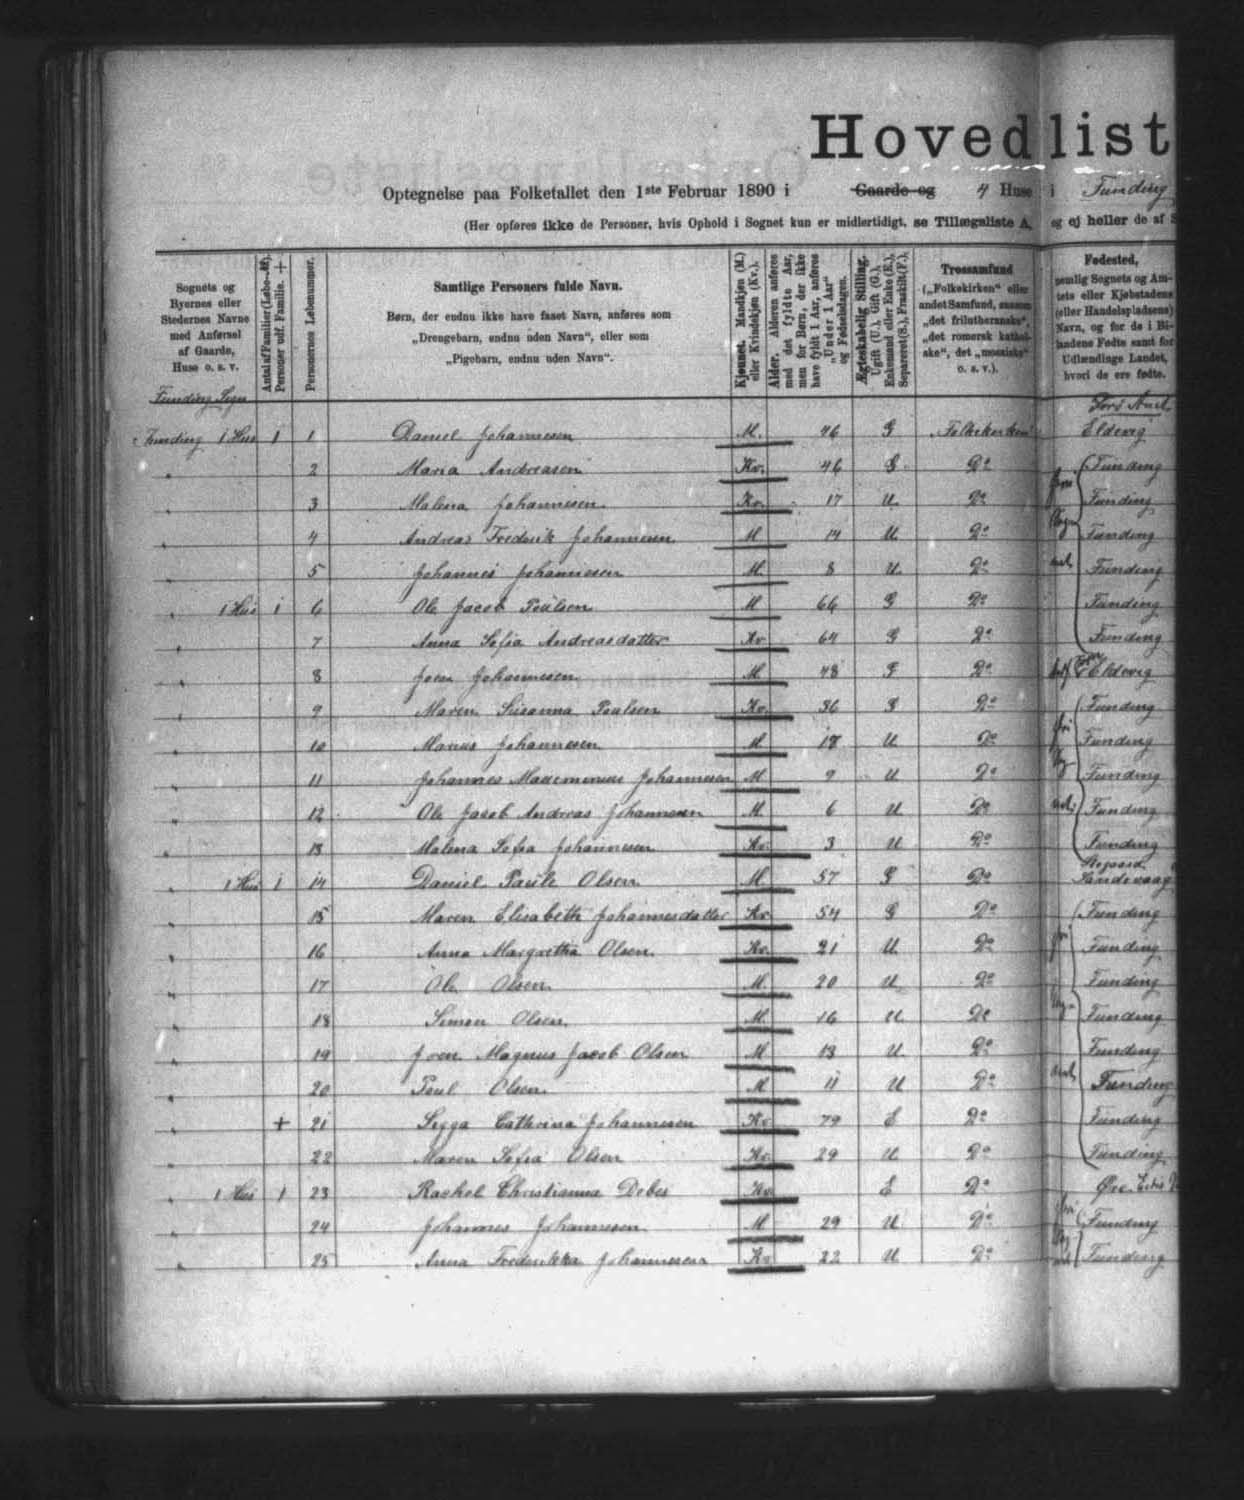 Hovedlist
Optegnelse paa Folketallet den 1ste Februar 1890 i Gaarde og 4 Huse i Funding
(Her opføres ikke de Personer, hvis Ophold i Sognet kun er midlertidigt, se Tillægsliste A, og ej heller de af S
Sognets og Byernes eller Stedernes Navne med Anførsel af Gaarde, Huse o. s. v.
Antal af Familier
Personer udf. Familie. +
Personernes Løbenummer.
Samtlige Personers fulde Navn.
Børn, der endnu ikke have faaet Navn, anføres som
„Drengebarn, endnu uden Navn“, eller som
„Pigebarn, endnu uden Navn“.
Kjønnet. Mandkjøn (M.) eller Kvindekjøn (Kv.).
Alder. Alderen anføres med det fyldte Aar, men for Børn, der ikke have fyldt 1 Aar, anføres „Under 1 Aar“ og Fødselsdagen.
Ægteskabelig Stilling. Ugift (U.), Gift (G.), Enkemand eller Enke (E.), Separeret (S.), Fraskilt (F.).
Trossamfund
(„Folkekirken“ eller andet Samfund, saasom „det frilutheranske“, „det romersk katholske“, det „mosaiske“ o. s. v.).
Fødested,
nemlig Sognets og Amtets eller Kjøbstadens (eller Handelspladsens) Navn, og for de i Bilandene Fødte samt for Udlændinge Landet, hvori de ere fødte.
Funding Sogn
Funding 1 Hus 1 1 Daniel Johannesen M. 46 G Folkekirken Eldevig
2 Maria Andreasen Kv. 46 G. Do Funding
3 Malena Johannesen Kv. 17 U. Do Funding
4 Andreas Fredrik Johannesen M 14 U. Do Funding
5 Johannes Johannesen M. 8 U. Do Funding
1 Hus 1 6 Ole Jacob Poulsen M 66 G Do Funding
7 Anna Sofia Andreasdatter Kv 64 G Do Funding
8 Joen Johannesen M. 48 G Do Eldevig
9 Maren Susanna Poulsen Kv. 36 G Do Funding
10 Marius Johannesen M 18 U Do Funding
11 Johannes Johannesen M 9 U Do Funding
12 Ole Jacob Andreas Johannesen M. 6 U Do Funding
13 Malena Sofia Johannesen Kv. 3 U Do Funding
1 Hus 1 14 Daniel Pauli Olsen M. 57 G Do Sandevaag
15 Maren Elisabeth Johannesdatter Kv. 54 G Do Funding
16 Anna Margretha Olsen Kv. 21 U. Do Funding
17 Ole Olsen M. 20 U Do Funding
18 Simon Olsen M. 16 U. Do Funding
19 Joen Magnus Jacob Olsen M 13 U. Do Funding
20 Poul Olsen M 11 U Do Funding
+ 21 Sigga Cathrina Johannesen Kv. 79 E Do Funding
22 Maren Sofia Olsen Kv. 29 U. Do Funding
1 Hus 1 23 Rachel Christianna Debes Kv. E Do
24 Johannes Johannesen M 29 U Do Funding
25 Anna Fredrikka Johannesen Kv 22 U. Do Funding